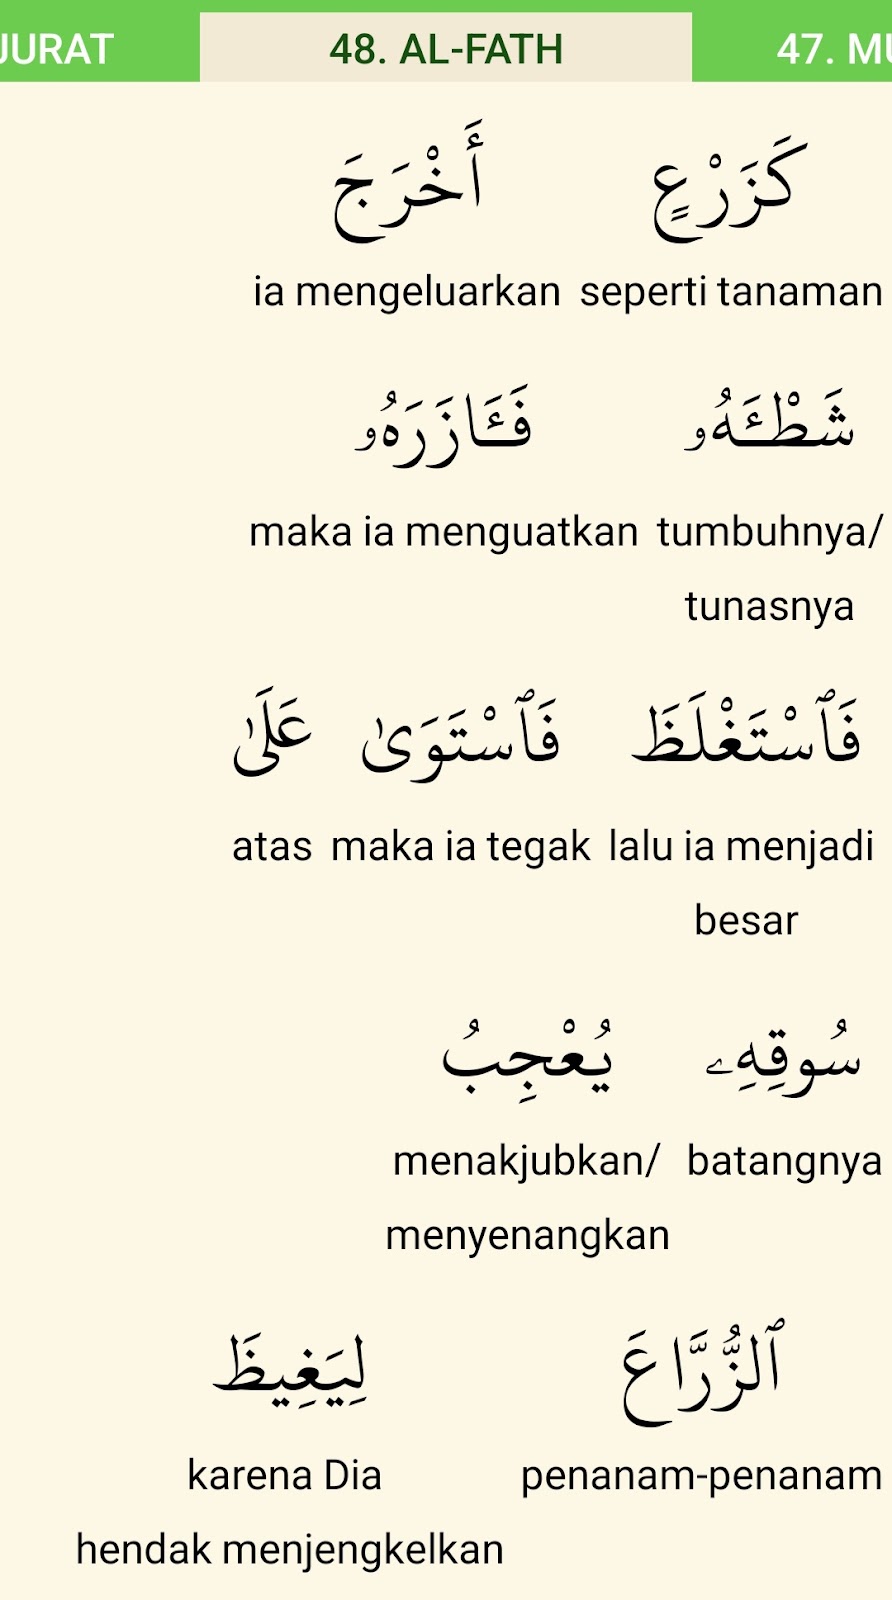 JURAT 48. AL-FATH 47. MU
كَزَرْعٍ أَخْرَجَ
ia mengeluarkan seperti tanaman
شَطْـَٔهُۥ فَـَٔازَرَهُۥ
maka ia menguatkan tumbuhnya/
tunasnya
فَٱسْتَغْلَظَ فَٱسْتَوَىٰ عَلَىٰ
atas maka ia tegak lalu ia menjadi
besar
سُوقِهِۦ يُعْجِبُ
menakjubkan/ batangnya
menyenangkan
ٱلزُّرَّاعَ لِيَغِيظَ
karena Dia penanam-penanam
hendak menjengkelkan